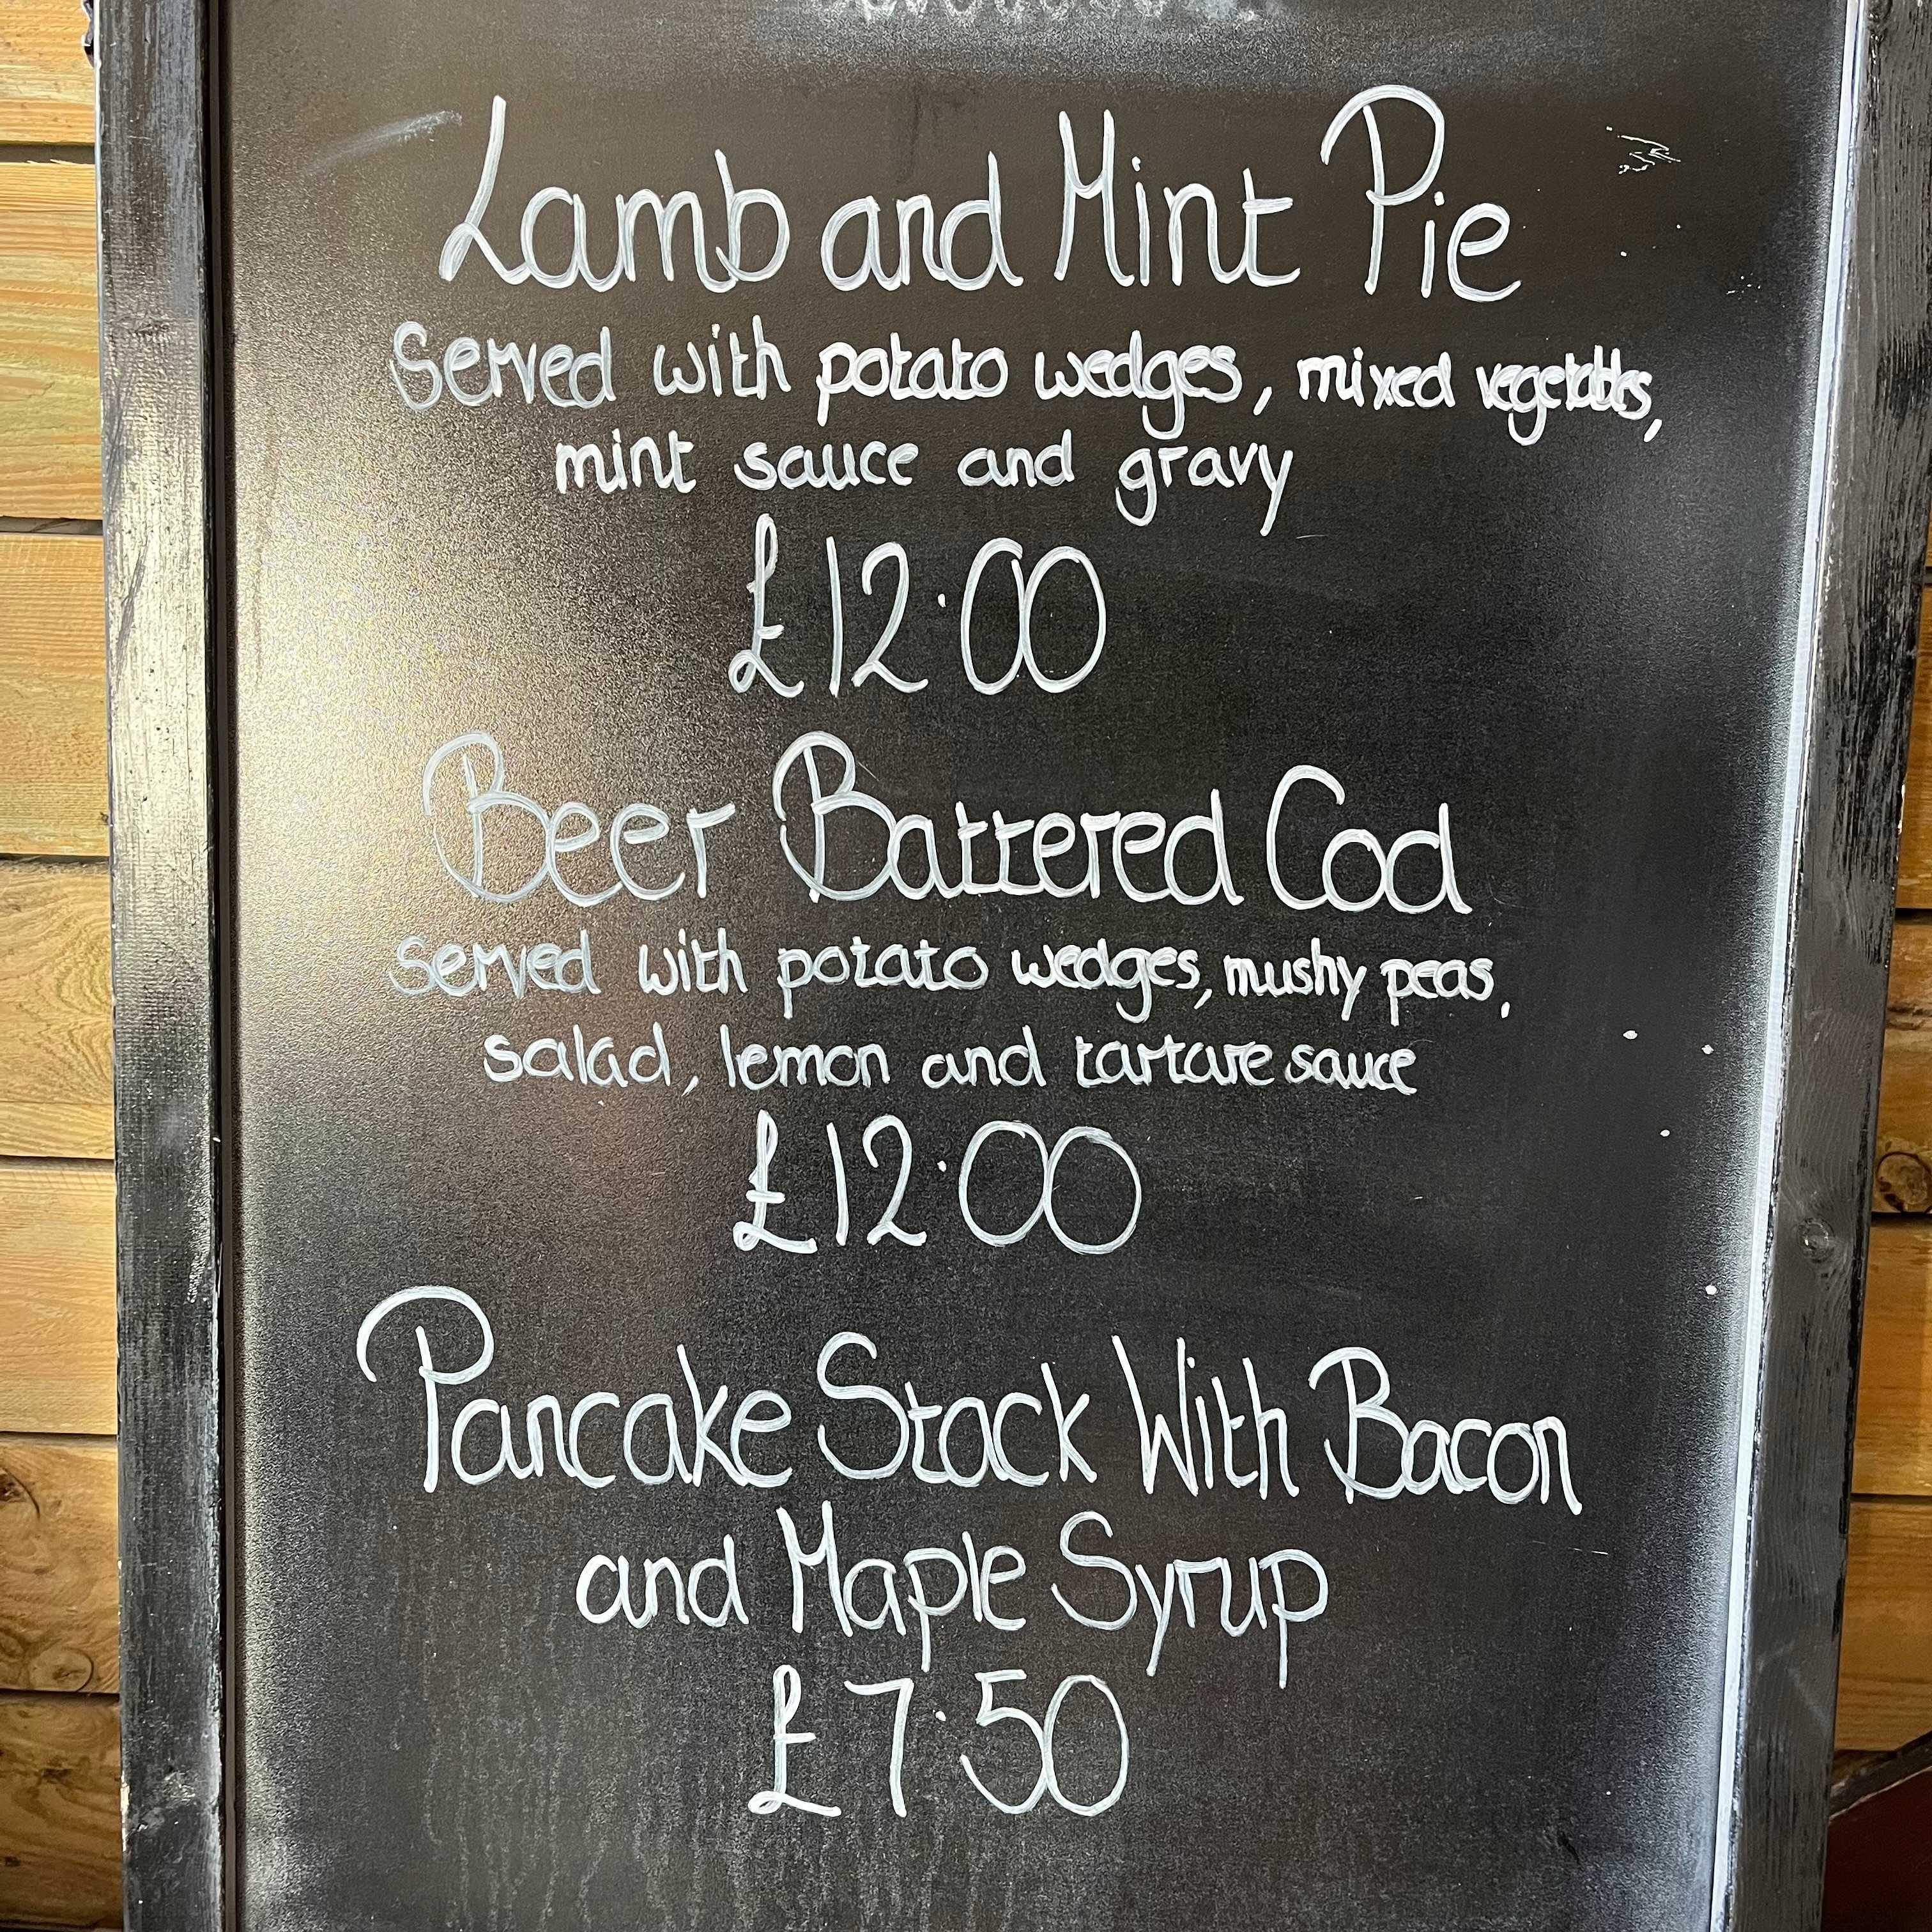 Lamb and Mint Pie
Served with potato wedges, mixed vegetables,
mint sauce and gravy
£12.00
Beer Battered Cod
served with potato wedges, mushy peas,
salad, lemon and tartare sauce
£12.00
Pancake Stack With Bacon
and Maple Syrup
£7.50